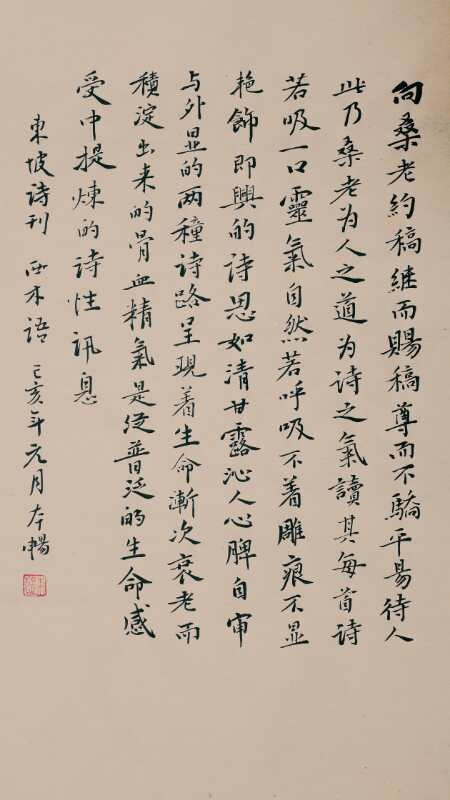 向桑老約稿继而賜稿尊而不驕平易待人
此乃桑老为人之道为詩之氣讀其每首詩
若吸一口靈氣自然若呼吸不着雕痕不显
艳飾即興的詩思如清甘露沁人心脾自审
与外显的两種詩路呈現着生命漸次衰老而
積淀出来的骨血精氣是从普泛的生命感
受中提煉的詩性訊息
東坡诗刊 西木语 己亥年元月本暢